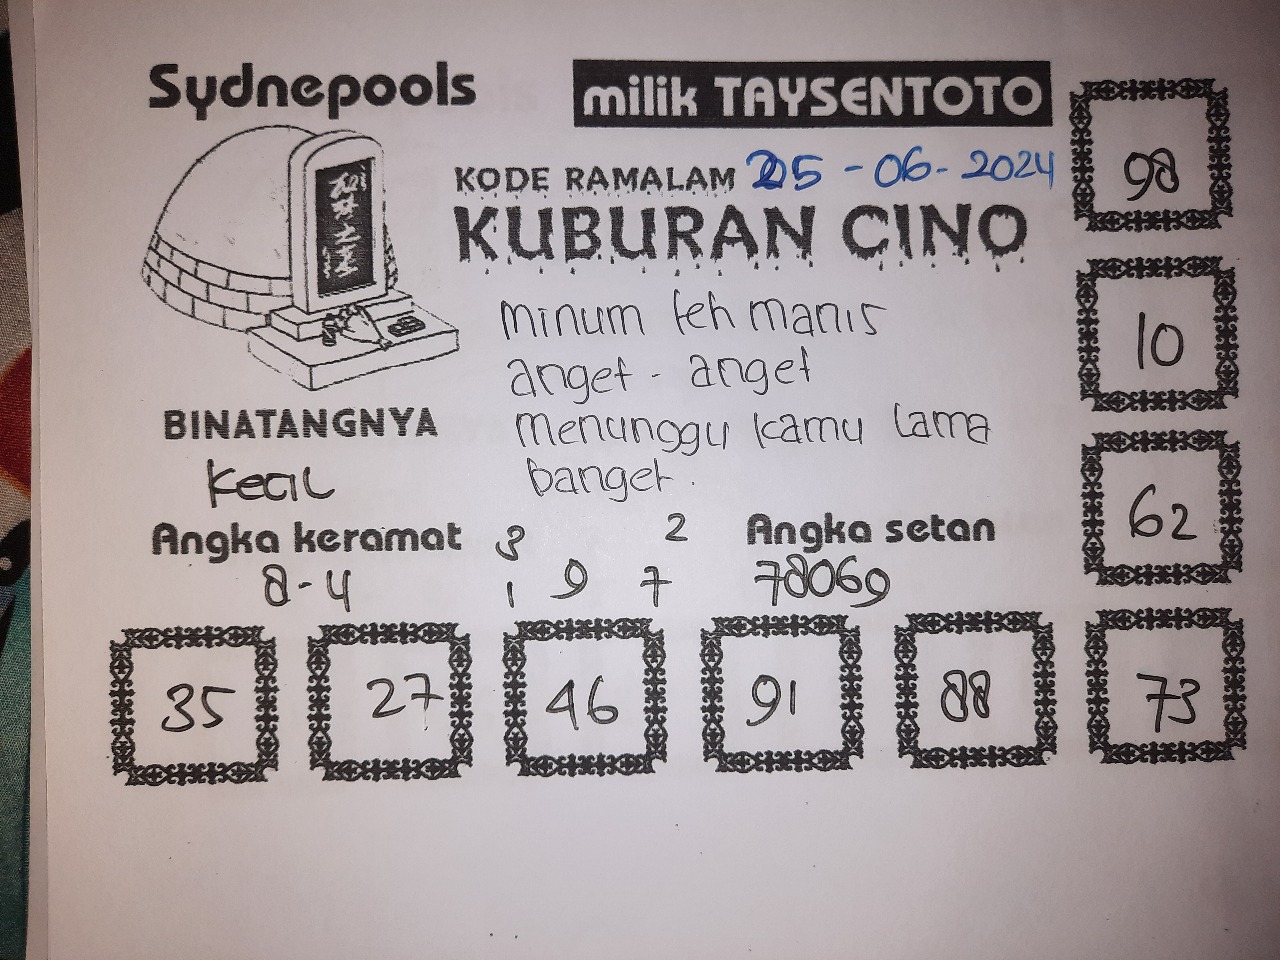 Sydnepools
milik TAYSENTOTO
KODE RAMALAM 25-06-2024
KUBURAN CINO
minum teh manis
anget - anget
menunggu kamu lama
banget.
BINATANGNYA
Kecil
Angka keramat
8-4
3 2
1 9 7
Angka setan
78069
98
10
62
35 27 46 91 88 73